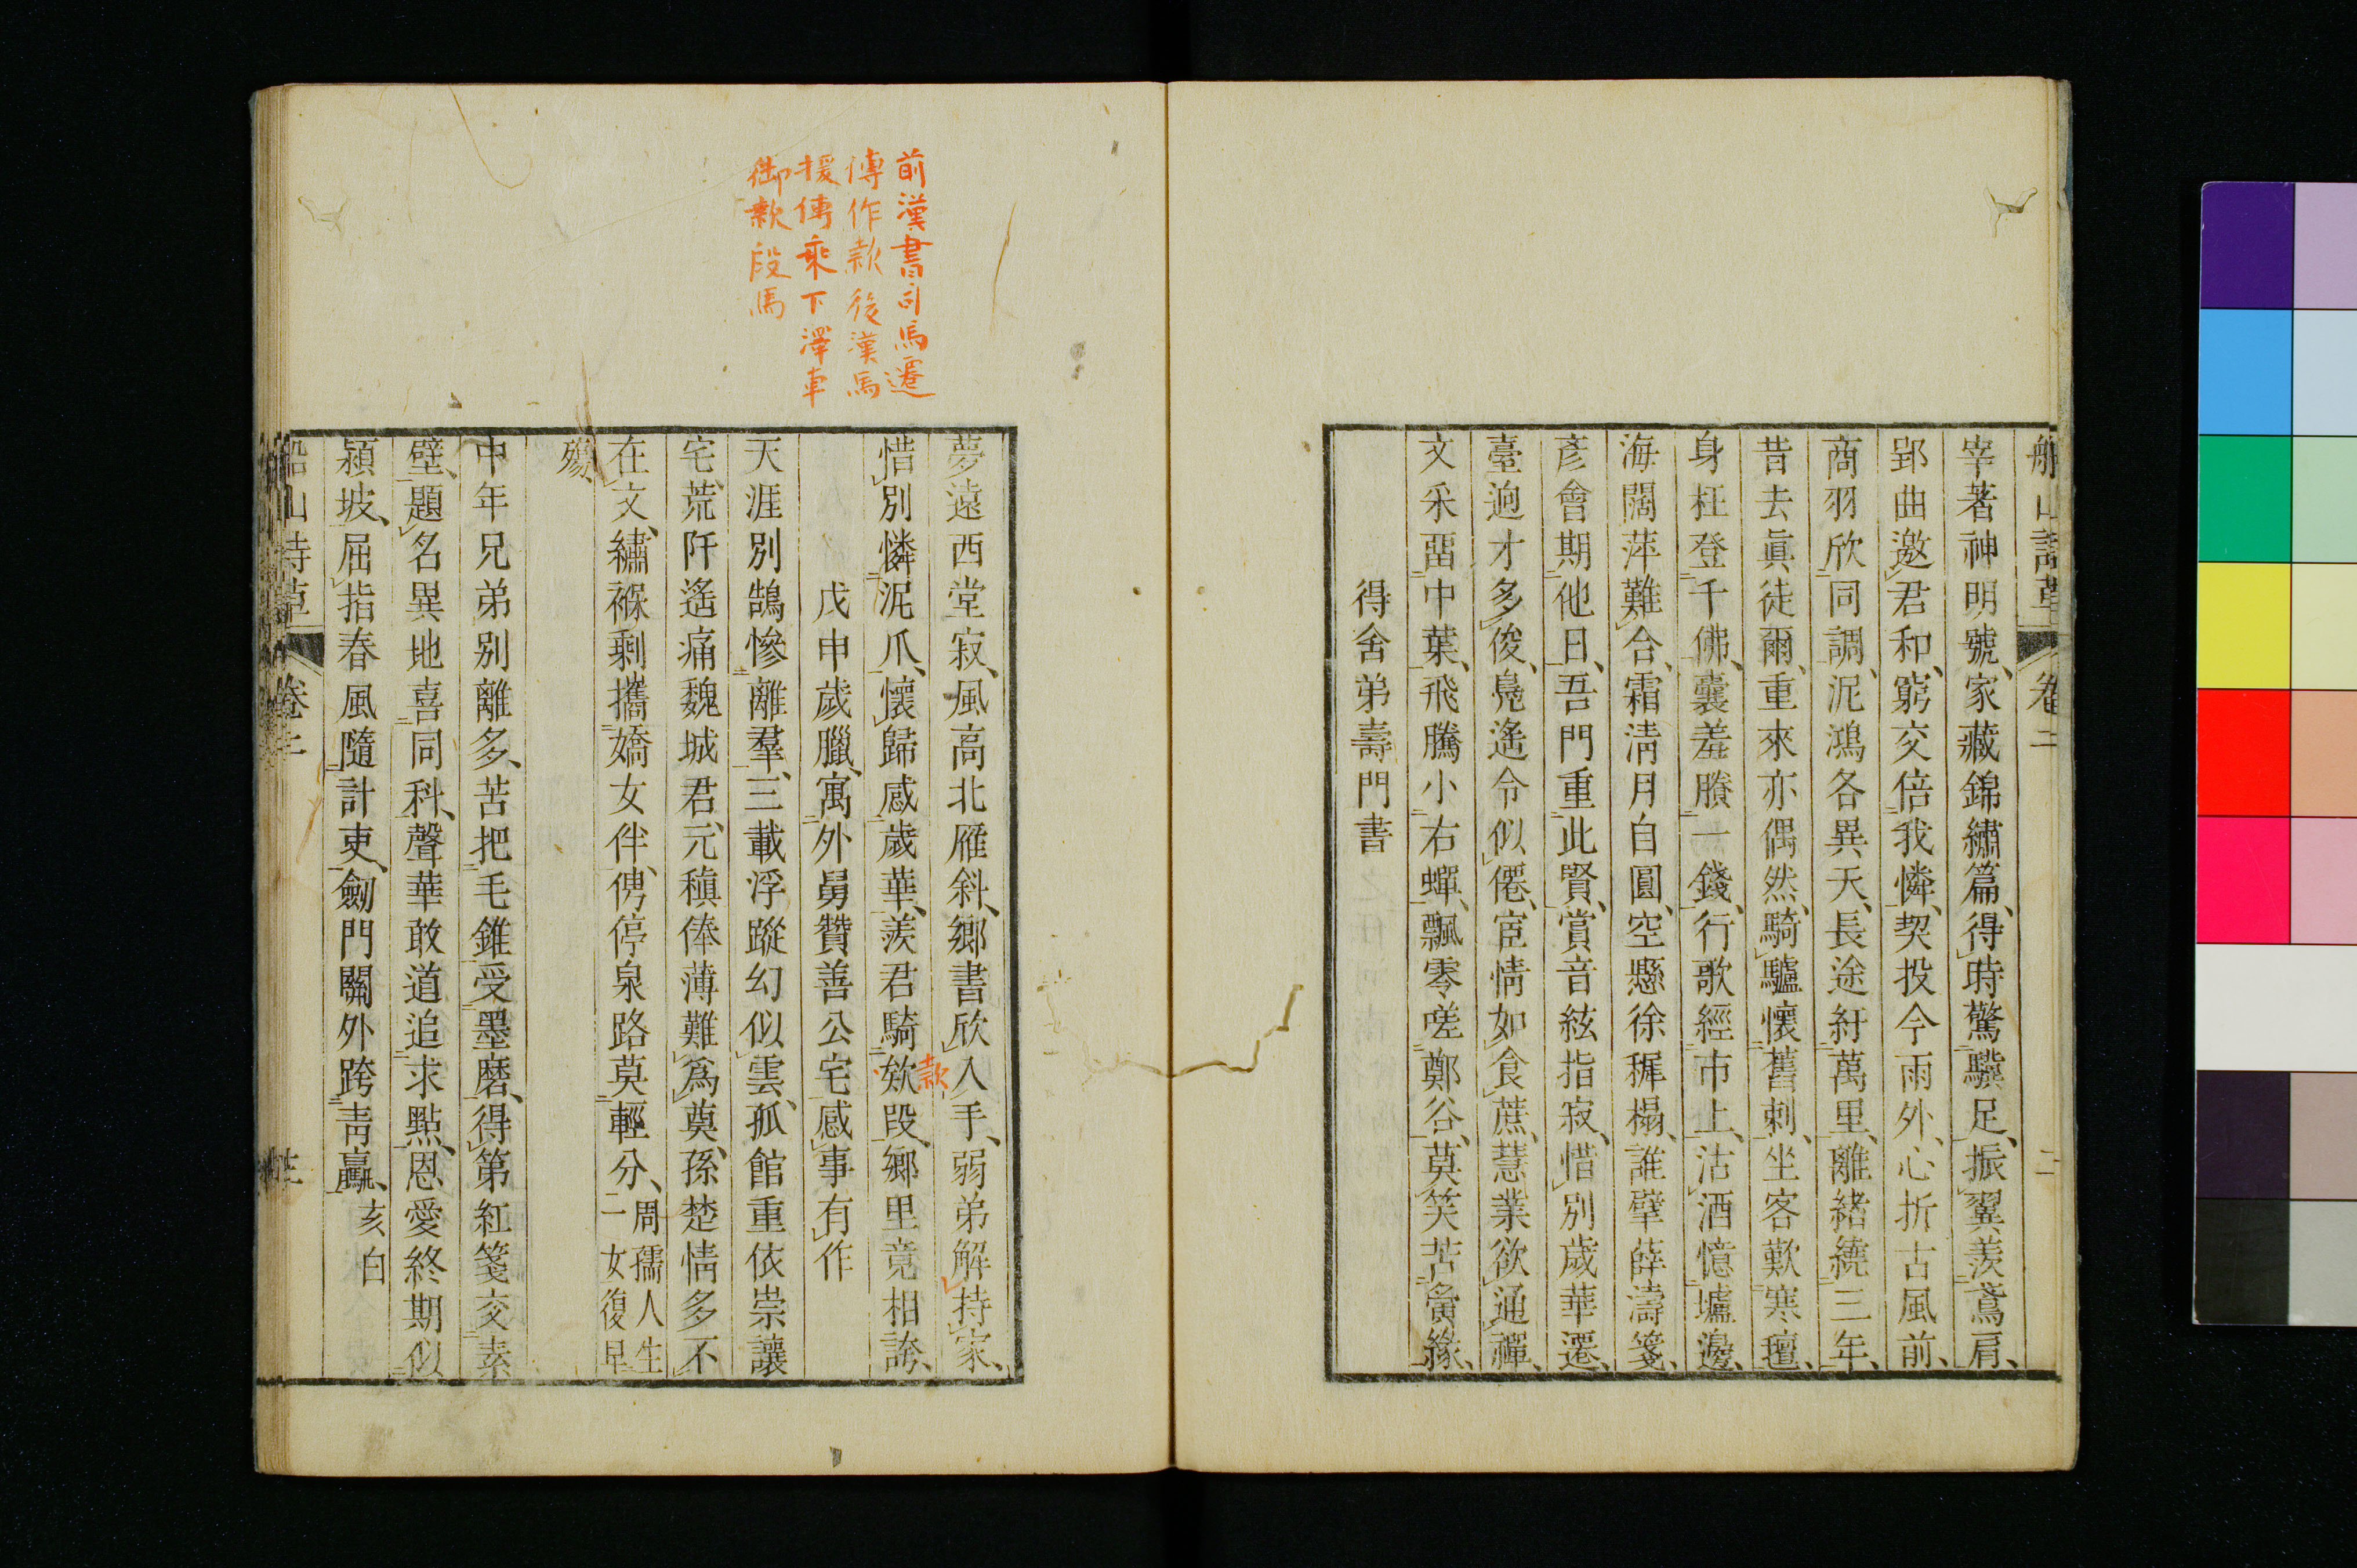 船山詩草 卷二 二
宰著神明號家藏錦繡篇得時驚驥足振翼羨鳶肩
郢曲邀君和窮交倍我憐契投今雨外心折古風前
商羽欣同調泥鴻各異天長途紆萬里離緒繞三年
昔去眞徒爾重來亦偶然騎驢懷舊刺坐客歎寒氊
身枉登千佛囊羞賸一錢行歌經市上沽酒憶壚邊
海闊萍難合霜淸月自圓空懸徐穉榻誰擘薛濤箋
彥會期他日吾門重此賢賞音絃指寂惜別歲華遷
臺逈才多俊鳧遙令似僊宦情如食蔗慧業欲通禪
文采畱中葉飛騰小右蟬飄零嗟鄭谷莫笑苦夤緣
得舍弟壽門書
夢遠西堂寂風高北雁斜鄉書欣入手弱弟解持家
惜別憐泥爪懷歸感歲華羨君騎欸段鄉里竟相誇
款
戊申歲臘寓外舅贊善公宅感事有作
天涯別鵠慘離羣三載浮蹤幻似雲孤館重依崇讓
宅荒阡遙痛魏城君元稹俸薄難爲奠孫楚情多不
在文繡褓剩攜嬌女伴俜停泉路莫輕分周孺人生
二女復早
殤
中年兄弟別離多苦把毛錐受墨磨得第紅箋交素
壁題名異地喜同科聲華敢道追求點恩愛終期似
潁坡屈指春風隨計吏劒門關外跨靑驘亥白
船山詩草 卷二
前漢書司馬遷
傳作款後漢馬
援傳乘下澤車
御款段馬